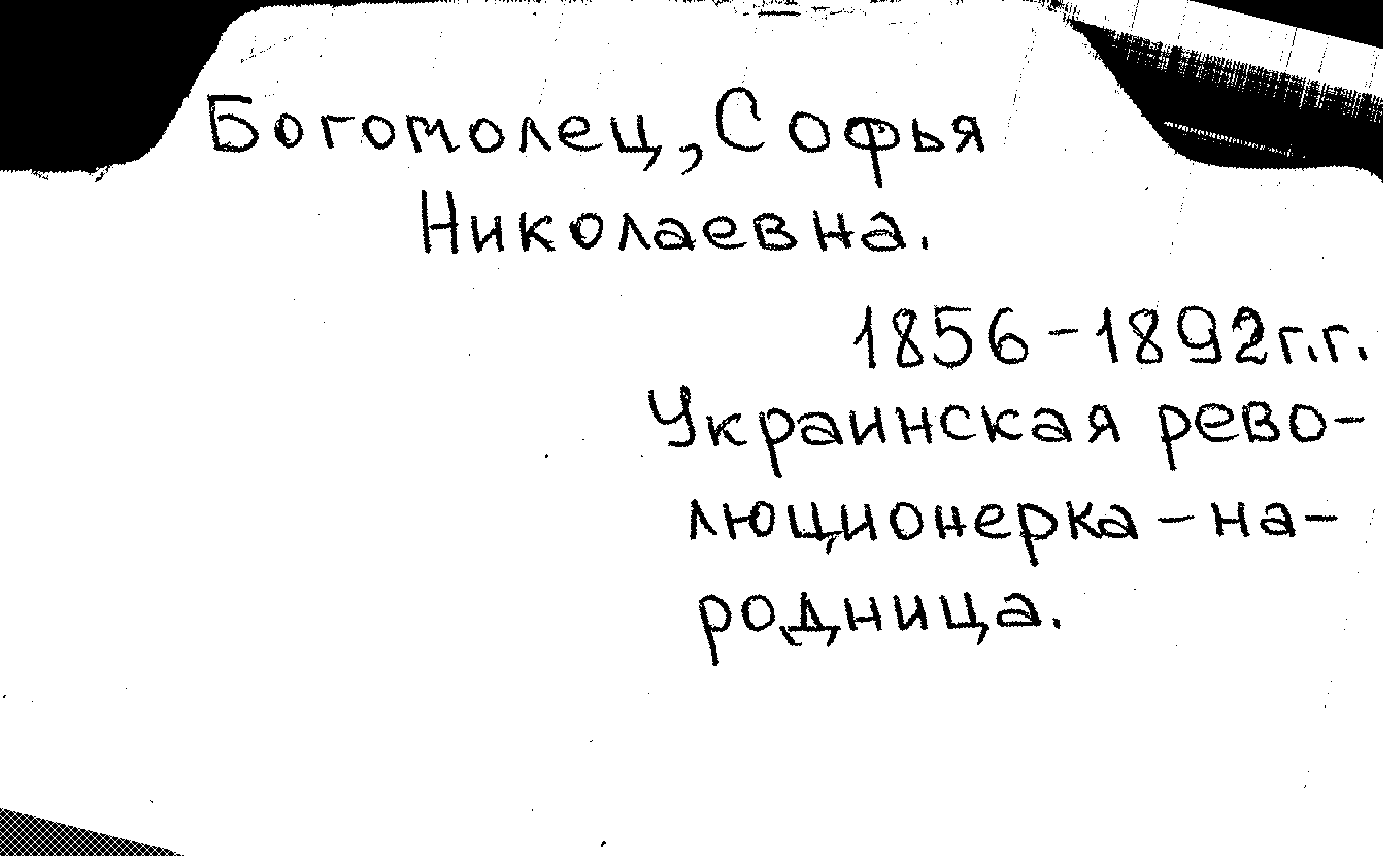 Богомолец, Софья
Николаевна.
1856-1892г.г.
Украинская рево-
люционерка - на-
родница.